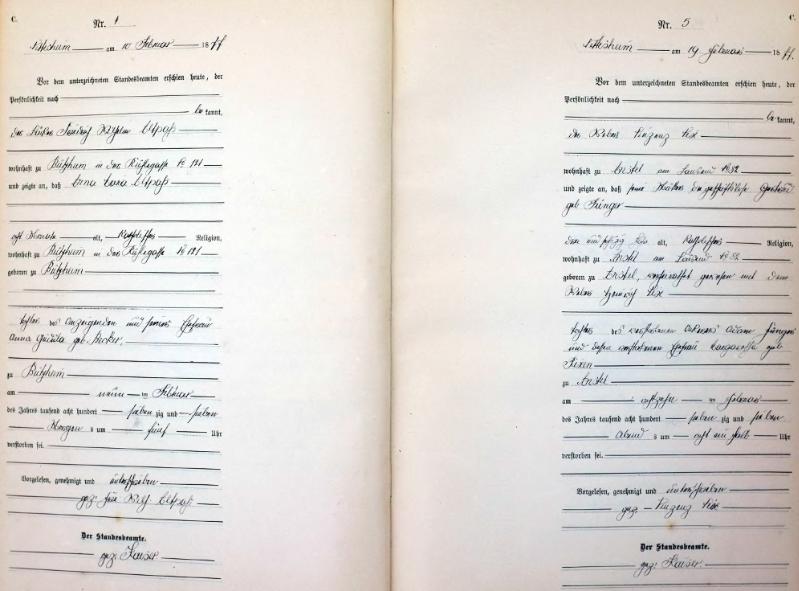 C.
Nr. 1
am 10 Februar 1877
Vor dem unterzeichneten Standesbeamten erschien heute, der
Persönlichkeit nach
be kannt,
der
wohnhaft zu Bützheim in der No 121
und zeigte an, daß Anna Maria
acht Monate alt, katholischer Religion,
wohnhaft zu Bützheim in der No 121
geboren zu Bützheim
Tochter des Anzeigenden und seiner Ehefrau
Anna geb. Becker.
zu Bützheim
am neun ten Februar
des Jahres tausend acht hundert sieben zig und sieben
Morgens um fünf Uhr
verstorben sei.
Vorgelesen, genehmigt und unterschrieben
gez.
Der Standesbeamte.
gez. Kaiser.
C.
Nr. 5
am 19 Februar 1877.
Vor dem unterzeichneten Standesbeamten erschien heute, der
Persönlichkeit nach
be kannt,
der Weber Vinzenz
wohnhaft zu Anstel am No 32
und zeigte an, daß seine Mutter die geschäftslose Gertrud
geb. Jünger
alt, katholischer Religion,
wohnhaft zu Anstel am
geboren zu Anstel, verheirathet gewesen mit dem
Weber Heinrich
Tochter des verstorbenen Ackerers Adam Jünger
und dessen verstorbenen Ehefrau Margaretha geb.
zu Anstel
am achtzehn ten Februar
des Jahres tausend acht hundert sieben zig und sieben
Abend s um acht ein halb Uhr
verstorben sei.
Vorgelesen, genehmigt und unterschrieben
gez. Vinzenz
Der Standesbeamte.
gez. Kaiser.